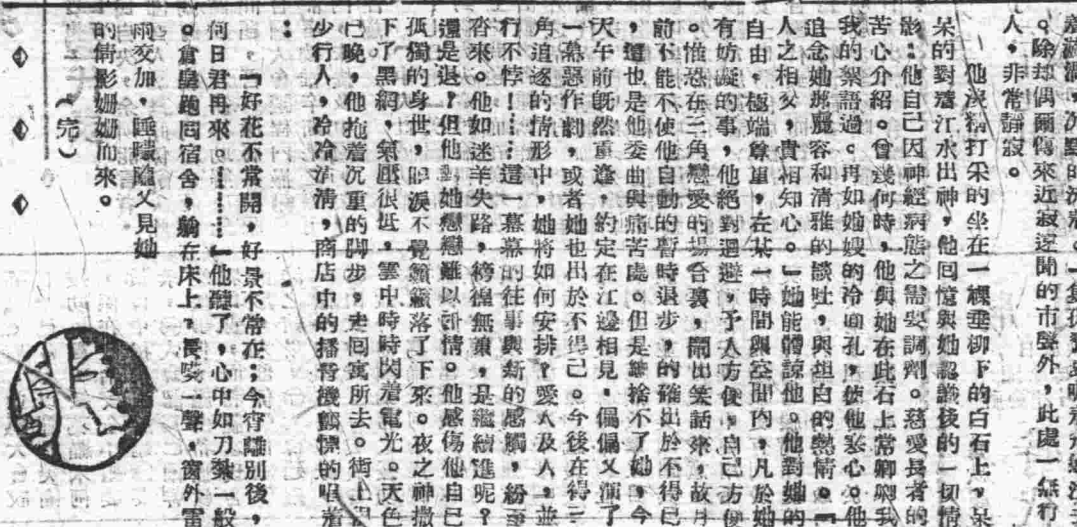 。除却偶爾傳來近寂遠聞的市聲外，此處一無行
人，非常靜寂。
他沒精打采的坐在一棵垂柳下的白石上，呆
呆的對着江水出神，他回憶與她認識後的一切情
影：他自己因神經病態之需要調劑。慈愛長者的
苦心介紹。曾幾何時，他與她在此石上常卿卿我
我的絮語過。再如她嫂的冷面孔，使他寒心。他
追念她那麗容和清雅的談吐，與坦白的熱情。「
人之相交，貴相知心。」她能體諒他。他對她的
自由，極端尊重，在某一時間與空間內，凡於她
有妨礙的事，他絕對迴避，予人方便，自己方便
。惟恐在三角戀愛的場合裏，鬧出笑話來，故月
前不能不使他自動的暫時退步，的確出於不得已
，這也是他委曲與痛苦處。但是難捨不了她，今
天午前既然重逢，約定在江邊相見，偏偏又演了
一幕惡作劇，或者她也出於不得己。今後在得三
角追逐的情形中，她將如何安排？愛人及人，並
行不悖！……這一幕幕的往事與新的感觸，紛至
沓來。他如迷羊失路，徬徨無策，是繼續進呢？
還是退？但他對她戀戀難以忘情。他感傷他自已
孤獨的身世，眼淚不覺簌簌落了下來。夜之神撒
下了黑網，氣壓很低，雲中時時閃着電光。天色
已晚，他拖着沉重的脚步，走回寓所去。街上
少行人，冷冷清清，商店中的播音機飄漂的唱着
：
「好花不常開，好景不常在；今宵離別後，
何日君再來。………」他聽了，心中如刀刺一般
。倉皇跑回宿舍，躺在床上，長嘆一聲，窗外雷
雨交加，睡矇隴又見她
的倩影姍姍而來。
（完）